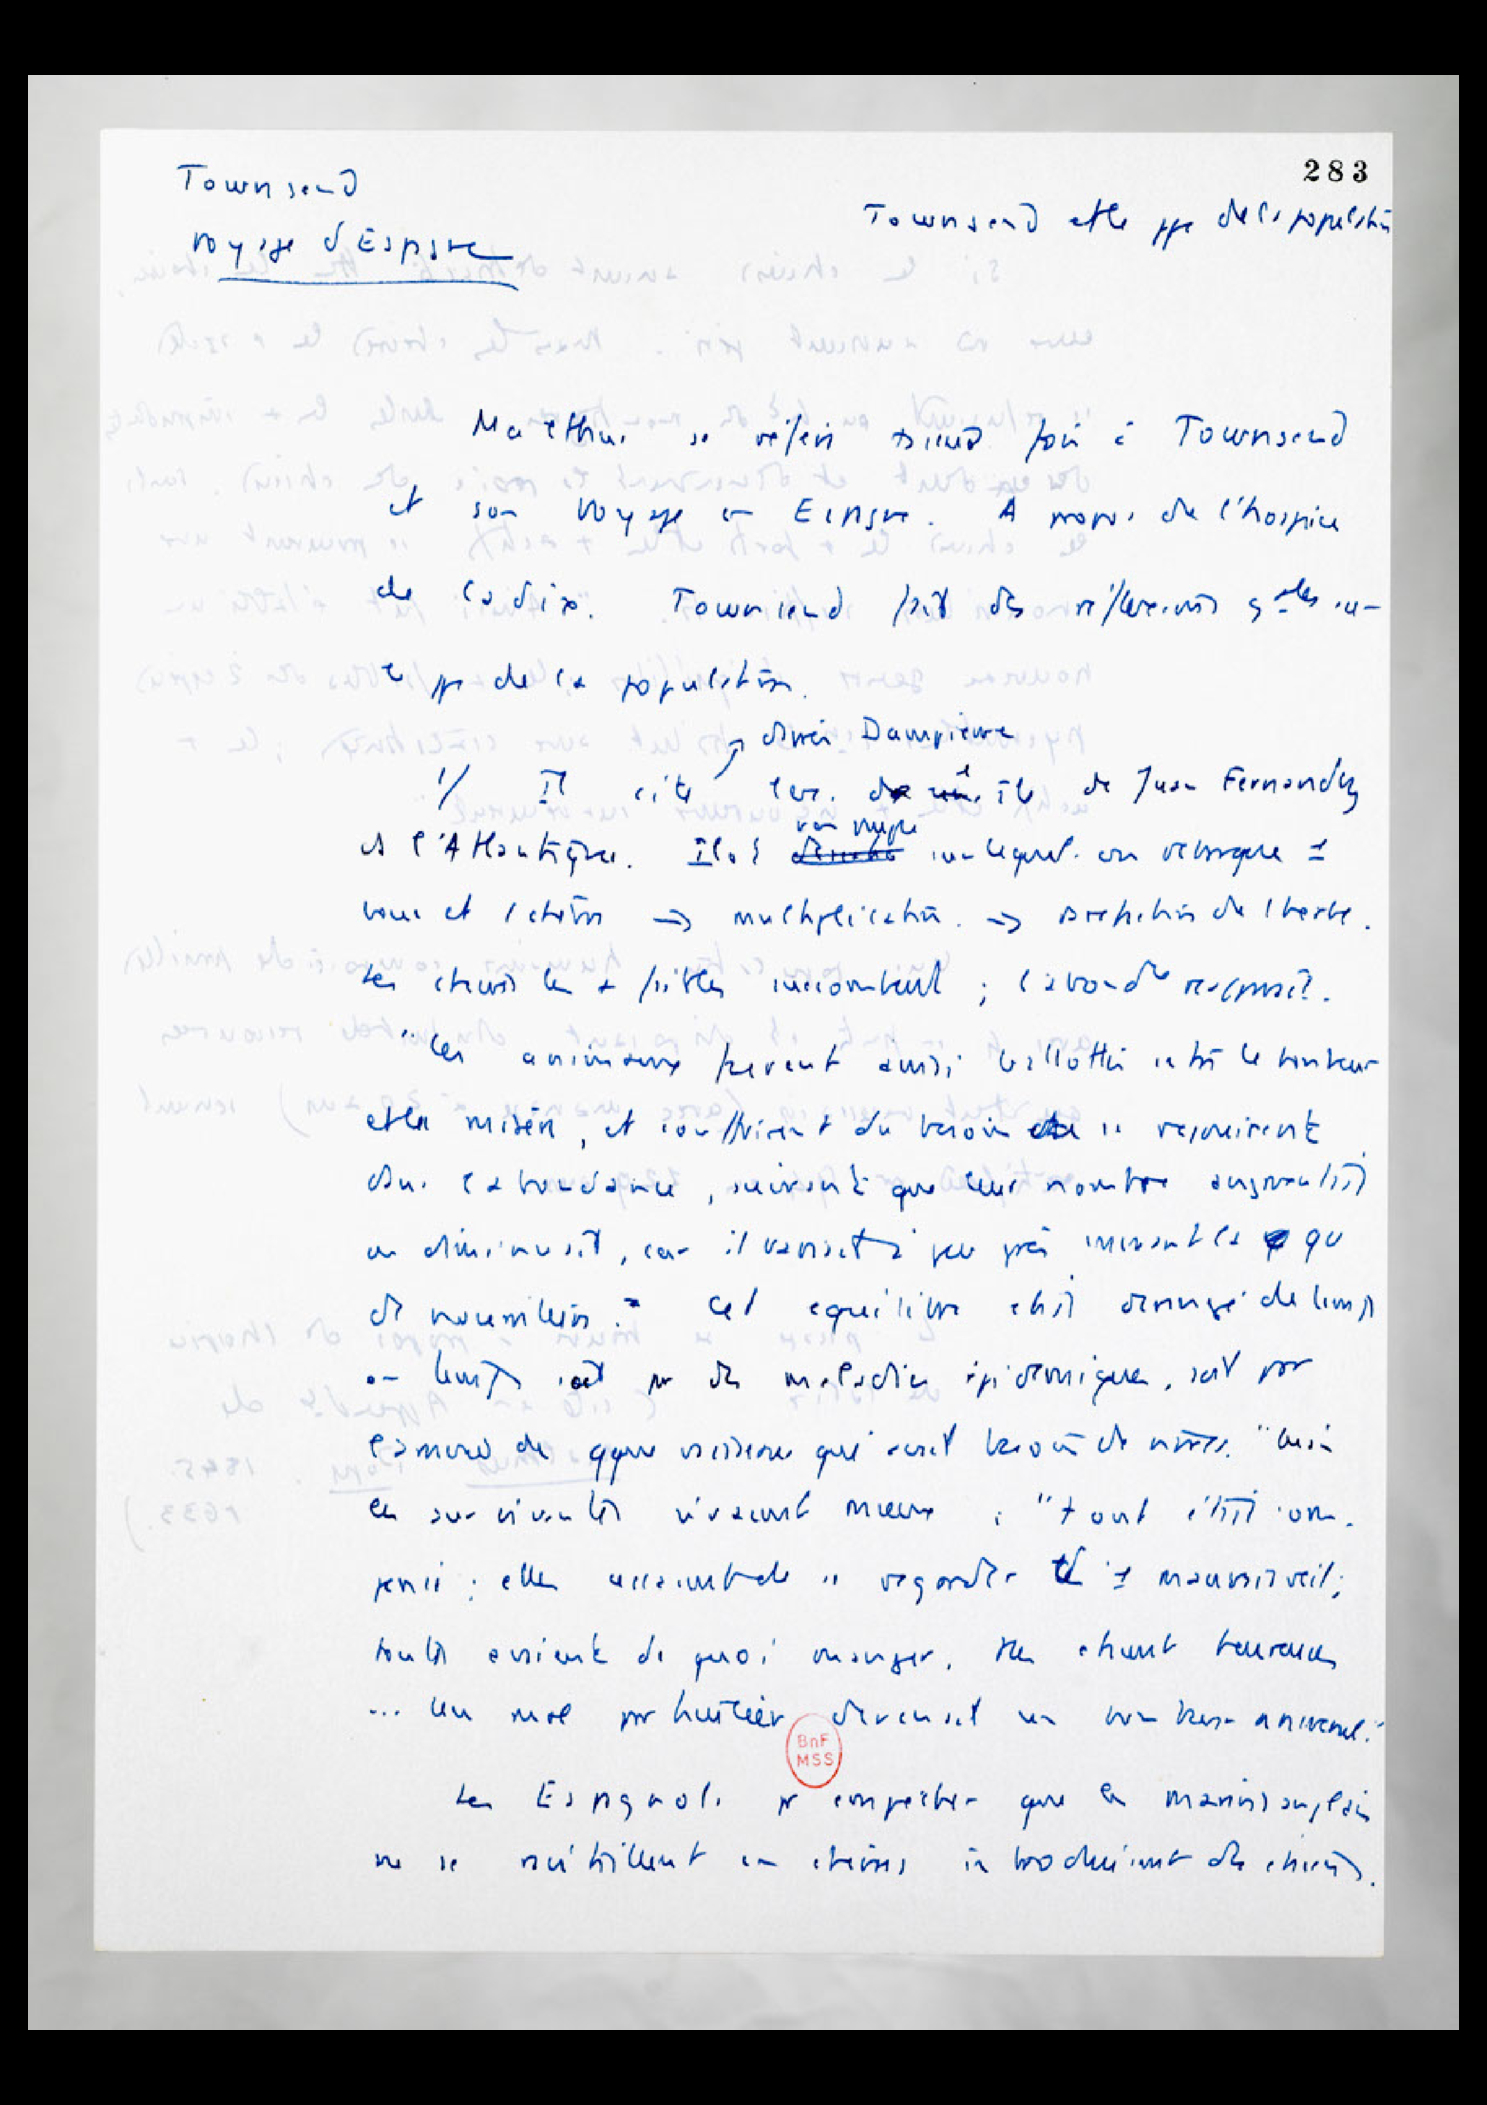 283
Townsend
Voyage d'Espagne
Townsend et le ppe de la population
Malthus se réfère pls fois à Townsend
et son Voyage en Espagne. A propos de l'hospice
de Cadix. Townsend fait des réflexions gales sur
le ppe de la population.
d'après Dampierre
1/ Il cite île de Juan Fernandez
ds l'Atlantique. sur laquelle on débarque 1
bouc et 1 chèvre → multiplication. → raréfaction de l'herbe.
Les chèvres les + faibles succombent ; l'abondce reparaît.
"Ces animaux furent ainsi ballottés entre le bonheur
et la misère, et souffrirent du besoin ou se rejouirent
dans l'abondance, suivant que leur nombre augmentait
ou diminuait, car il variait à peu près suivant la qu
de nourriture." Cet équilibre était dérangé de temps
en temps soit par des maladies épidémiques, soit par
l'arrivée de qque vaisseau qui avait besoin de vivres.
les survivantes vivaient mieux : "tout était com-
pensé ; elles cessaient de se regarder d'1 mauvais œil ;
toutes avaient de quoi manger, toutes étaient heureuses
... Un mal particulier devenait un bonheur universel."
Les Espagnols pr empêcher que les marins anglais
ne se ravitaillent en chèvres introduisirent des chiens.
BnF
MSS